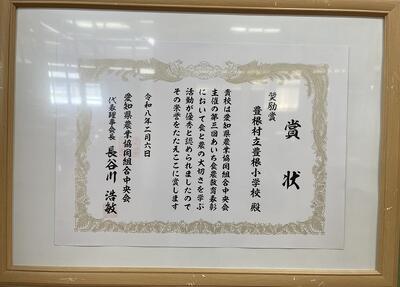 賞状
奨励賞
豊根村立豊根小学校 殿
貴校は愛知県農業協同組合中央会
主催の第三回あいち食農教育表彰
において食と農の大切さを学ぶ
活動が優秀と認められましたので
その栄誉をたたえここに賞します
令和八年二月六日
愛知県農業協同組合中央会
代表理事会長 長谷川 浩敏